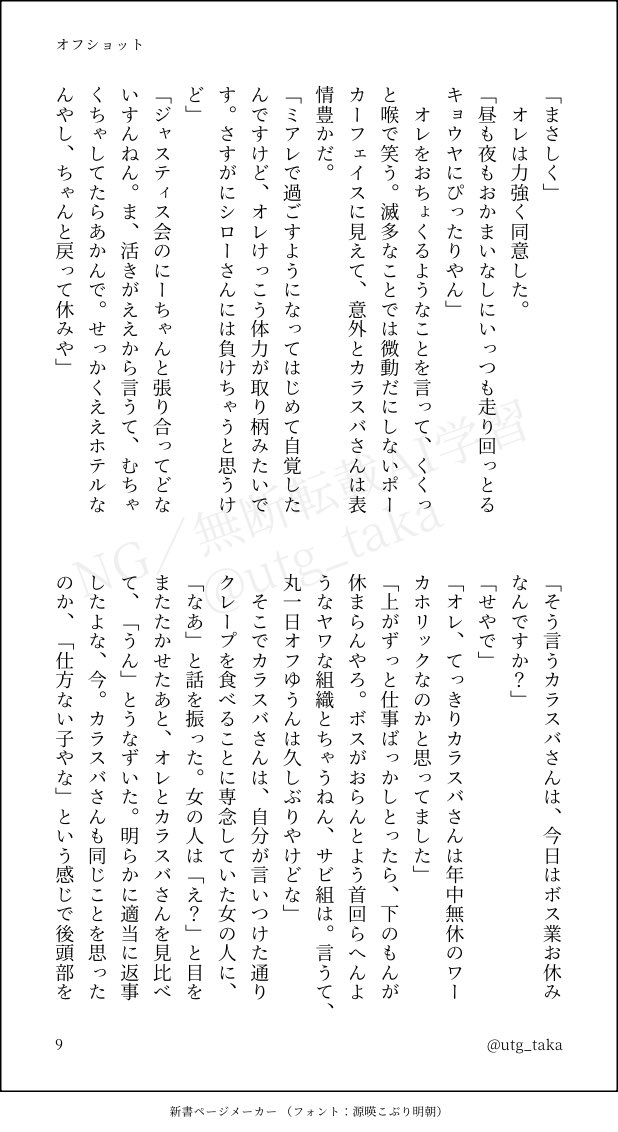 オフショット
「まさしく」
　オレは力強く同意した。
「昼も夜もおかまいなしにいっつも走り回っとる
キョウヤにぴったりやん」
　オレをおちょくるようなことを言って、くくっ
と喉で笑う。滅多なことでは微動だにしないポー
カーフェイスに見えて、意外とカラスバさんは表
情豊かだ。
「ミアレで過ごすようになってはじめて自覚した
んですけど、オレけっこう体力が取り柄みたいで
す。さすがにシローさんには負けちゃうと思うけ
ど」
「ジャスティス会のにーちゃんと張り合ってどな
いすんねん。ま、活きがええから言うて、むちゃ
くちゃしてたらあかんで。せっかくええホテルな
んやし、ちゃんと戻って休みや」
「そう言うカラスバさんは、今日はボス業お休み
なんですか？」
「せやで」
「オレ、てっきりカラスバさんは年中無休のワー
カホリックなのかと思ってました」
「上がずっと仕事ばっかしとったら、下のもんが
休まらんやろ。ボスがおらんとよう首回らへんよ
うなヤワな組織とちゃうねん、サビ組は。言うて、
丸一日オフゆうんは久しぶりやけどな」
　そこでカラスバさんは、自分が言いつけた通り
クレープを食べることに専念していた女の人に、
「なあ」と話を振った。女の人は「え？」と目を
またたかせたあと、オレとカラスバさんを見比べ
て、「うん」とうなずいた。明らかに適当に返事
したよな、今。カラスバさんも同じことを思った
のか、「仕方ない子やな」という感じで後頭部を
NG／無断転載AI学習
@utg_taka
9
@utg_taka
新書ページメーカー（フォント：源暎こぶり明朝）